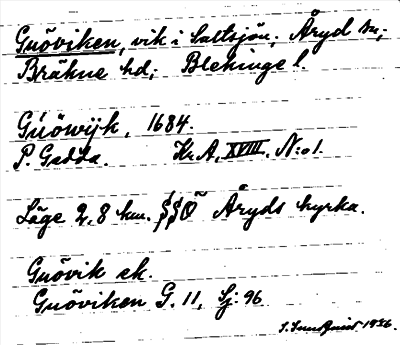 Guöviken, vik i Saltsjön; Åryd sn;
Bräkne hd; Blekinge l.
Guöwijk, 1684.
P. Gedda. Kr. A. XVIII. N:o 1.
Läge 2,8 km. SSÖ Åryds kyrka.
Guövik ek.
Guöviken G. 11, Sj: 96
S. Sundquist 1936.